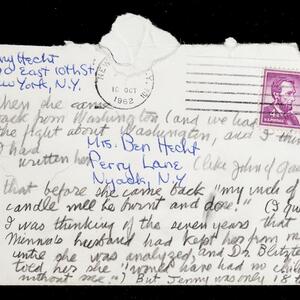 ny Hecht
East 10th St
ew York, N.Y.
NEW Y.
10 OCT
1962
hen she came
back from Washington (and we had
the fight about Washington, and I
I had
written her (like John of
Mrs. Ben Hecht
Perry Lane
Nyack, N.Y.
that before she came back "my inch of
candle will be burnt and done!" (I
I was thinking of the seven years that
Minna's husband had kept her from me
until she was analyzed, and Dr.
told her she "would have had no
without me.") But Jenny was only 18